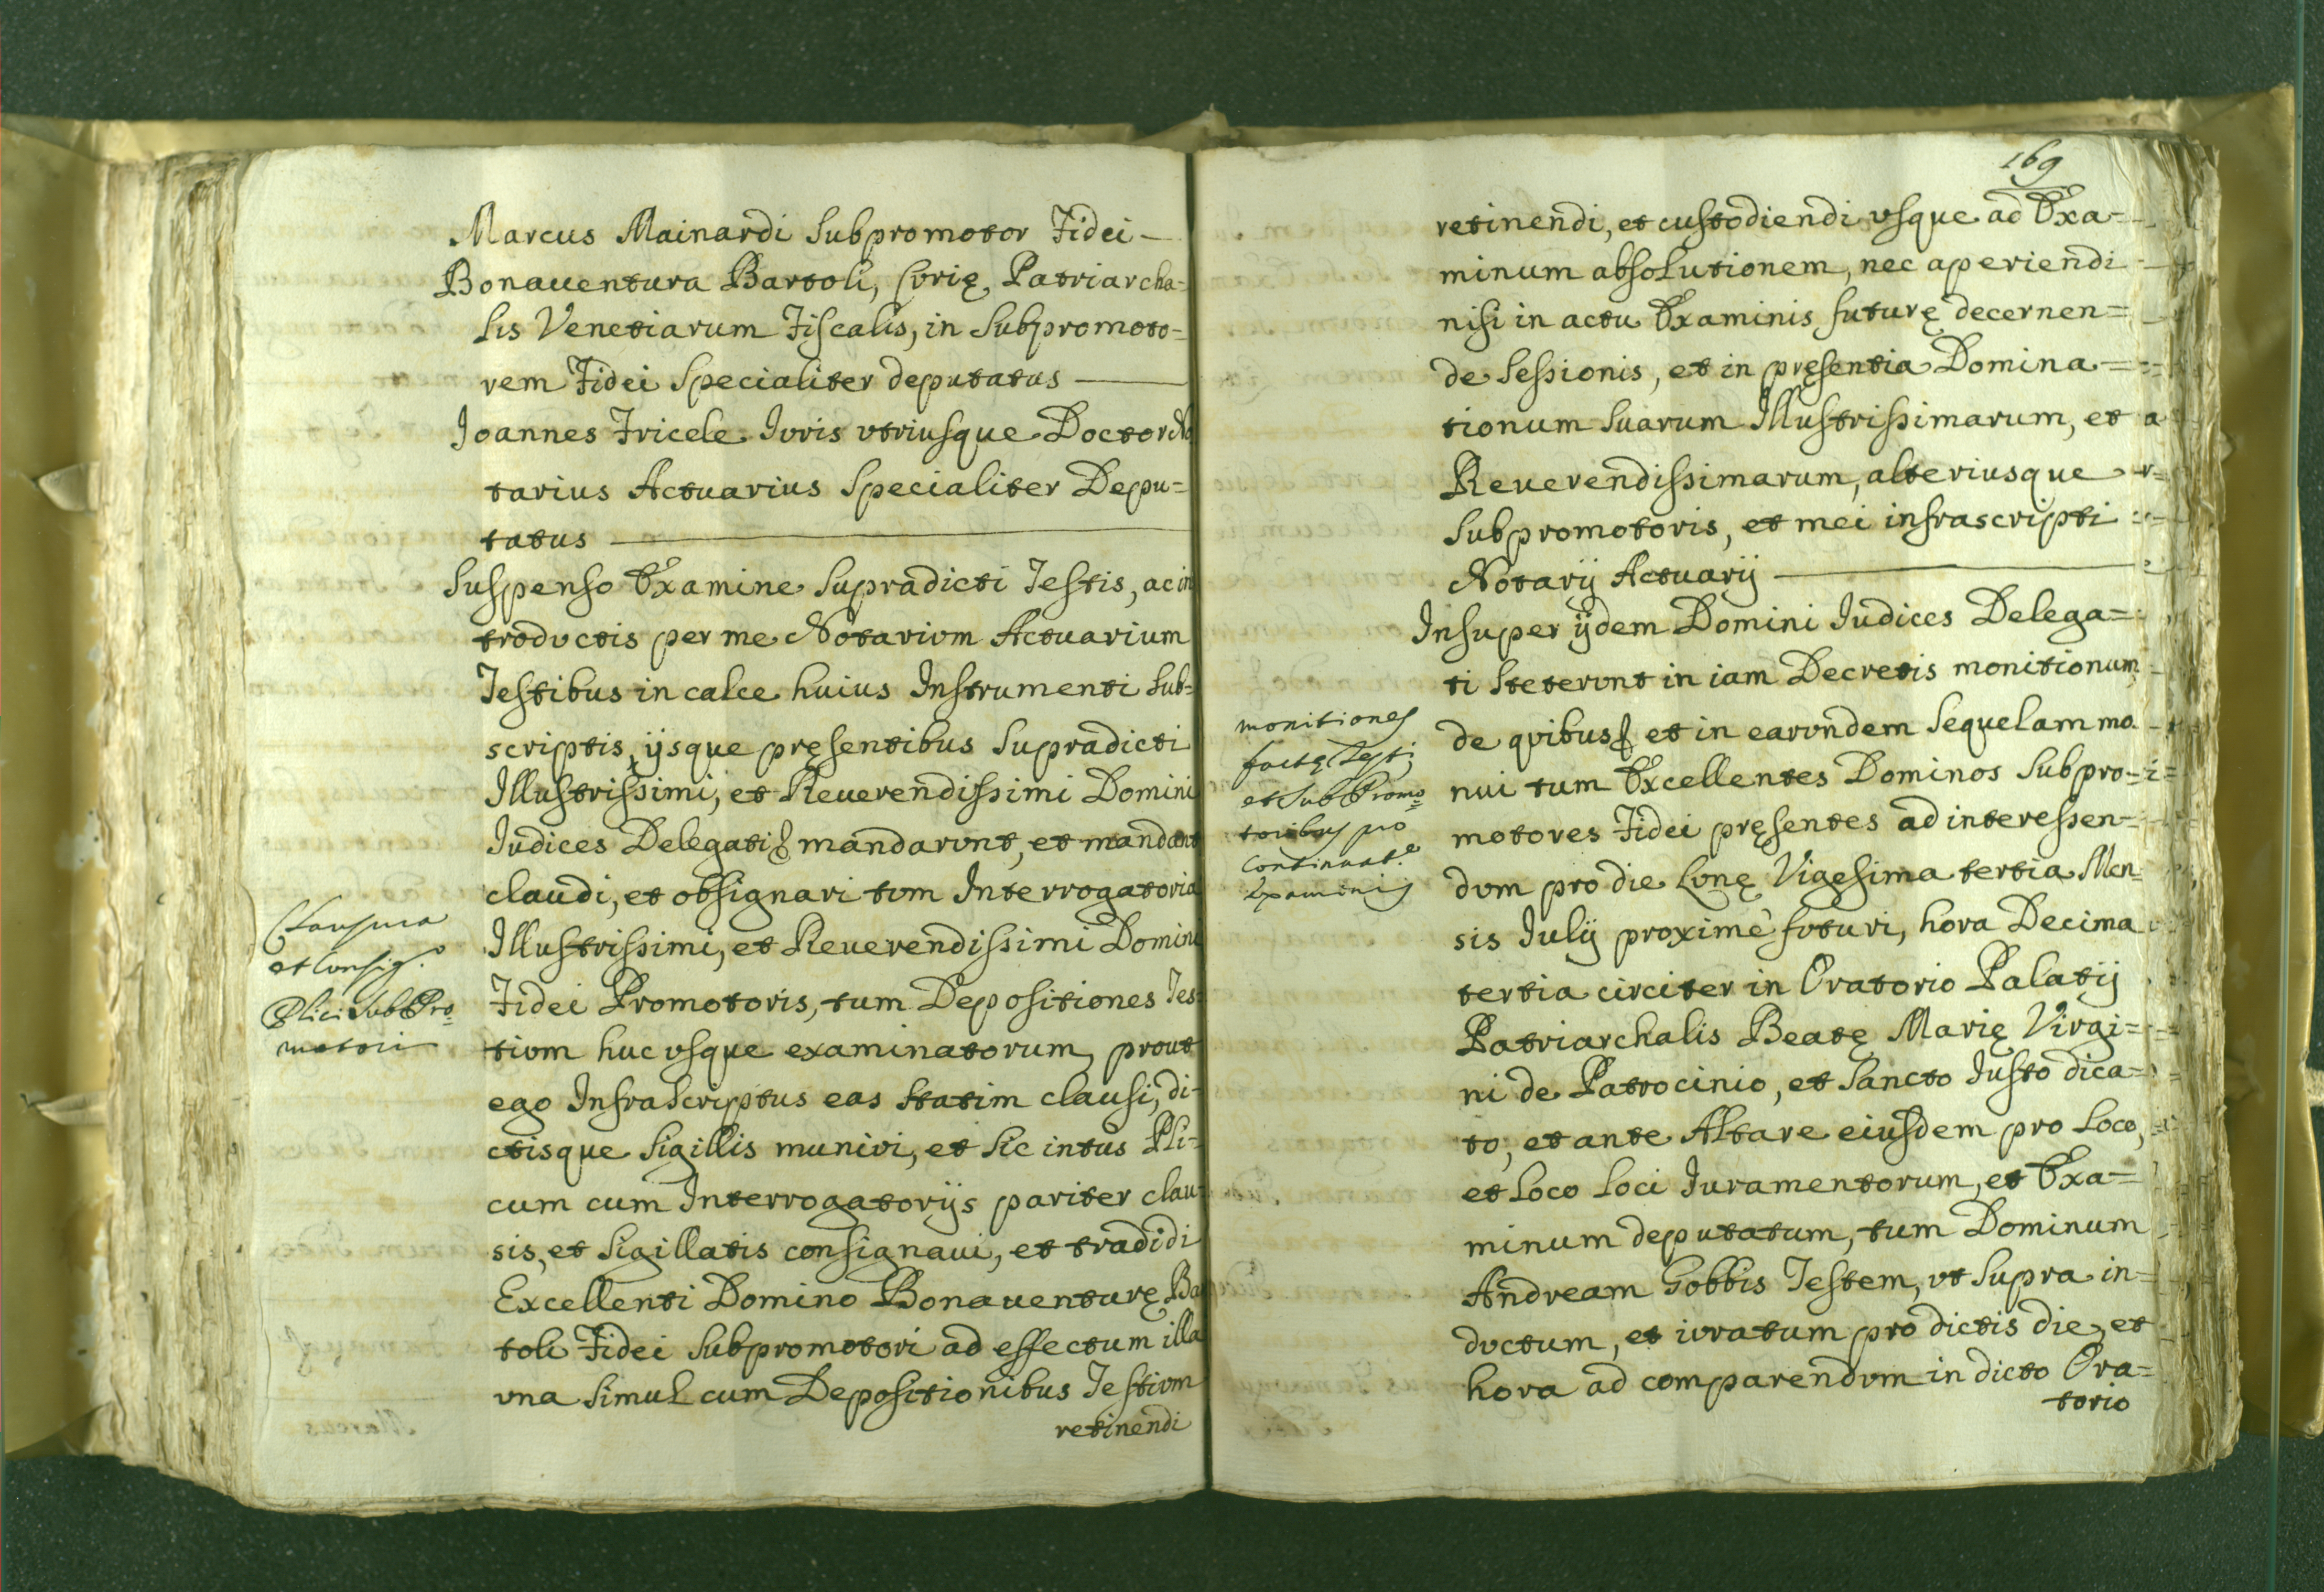 Marcus Mainardi Subpromotor Fidei —
Bonauentura Bartoli, Curię Patriarcha=
lis Venetiarum Fiscalis, in Subpromoto=
rem Fidei Specialiter deputatus —
Joannes Fricele Iuris vtriusque Doctor No
tarius Actuarius Specialiter Depu=
tatus —
Suspenso Examine Supradicti Testis, ac in
troductis per me Notarium Actuarium
Testibus in calce huius Instrumenti Sub=
scriptis, ijsque pręsentibus Supradicti
Illustrissimi, et Reuerendissimi Domini
Iudices Delegati mandarunt, et mandant
claudi, et obsignari tum Interrogatoria
Illustrissimi, et Reuerendissimi Domini
Fidei Promotoris, tum Depositiones Tes=
tium huc vsque examinatorum, prout
ego Infrascriptus eas statim clausi, di=
ctisque Sigillis muniui, et sic intus Pli=
cum cum Interrogatorijs pariter clau=
sis, et Sigillatis consignaui, et tradidi
Excellenti Domino Bonauenturę Bar
toli Fidei Subpromotori ad effectum illa
vna simul cum Depositionibus Testium
retinendi
Clausura
et Consig.
Plici SubPro=
motori
169
retinendi, et custodiendi vsque ad Exa=
minum absolutionem, nec aperiendi
nisi in actu Examinis futurę decernen=
de Sessionis, et in pręsentia Domina=
tionum Suarum Illustrissimarum, et
Reuerendissimarum, alteriusque
Subpromotoris, et mei infrascripti
Notarij Actuarij —
Insuper ijdem Domini Iudices Delega=
ti steterunt in iam Decretis monitionum
de quibus et in earundem Sequelam mo
nui tum Excellentes Dominos Subpro=
motores Fidei pręsentes ad interessen=
dum pro die Lunę Vigesima tertia Men=
sis Iulij proximè futuri, hora Decima
tertia circiter in Oratorio Palatij
Patriarchalis Beatę Marię Virgi=
ni de Patrocinio, et Sancto Iusto dica=
to, et ante Altare eiusdem pro Loco,
et Loco Loci Iuramentorum, et Exa=
minum deputatum, tum Dominum
Andream Gobbis Testem, vt Supra in=
ductum, et iuratum pro dictis die, et
hora ad comparendum in dicto Ora=
torio
monitiones
factę Testi
et Sub Promo=
toribus pro
continuat.e
Examinis